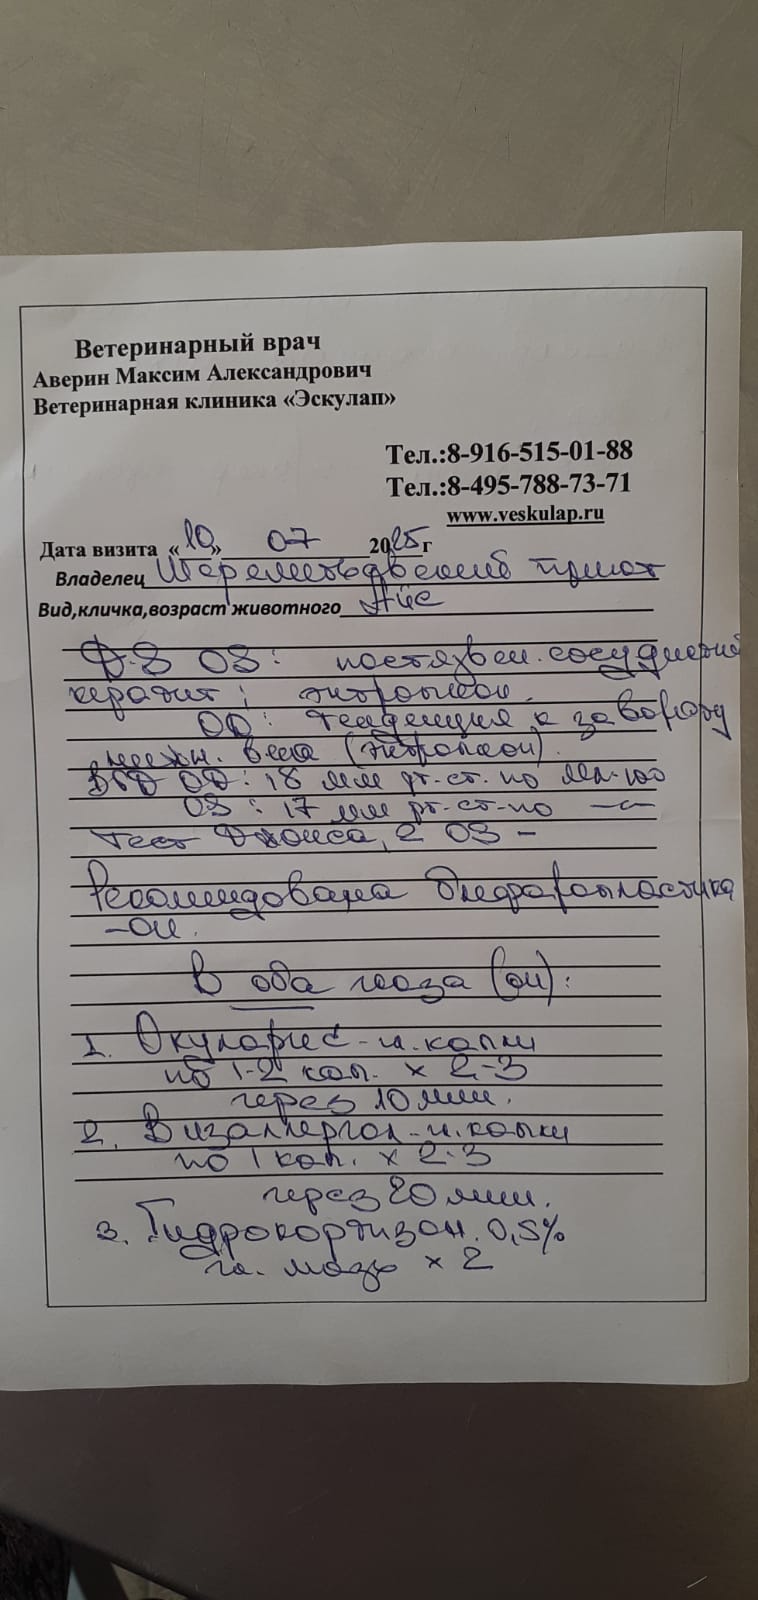 Ветеринарный врач
Аверин Максим Александрович
Ветеринарная клиника «Эскулап»
Тел.:8-916-515-01-88
Тел.:8-495-788-73-71
www.veskulap.ru
Дата визита «10» 07 2025г
Владелец Шереметьевский приют
Вид,кличка,возраст животного
Д-З OS: постязвен. сосудистый
кератит; энтропион.
OD: тенденция к завороту
нижн. века (энтропион).
ВГД OD: 18 мм рт.ст. по
OS: 17 мм рт-ст-по
Тест Джонса, 2 OS -
Рекомендована блефаропластика
-ou.
В оба глаза (ou):
1. Окуларис - гл. капли
по 1-2 кап. x 2-3
через 10 мин.
2. Визаллергол - гл. капли
по 1 кап. x 2-3
через 20 мин.
3. Гидрокортизон. 0,5%
гл. мазь x 2